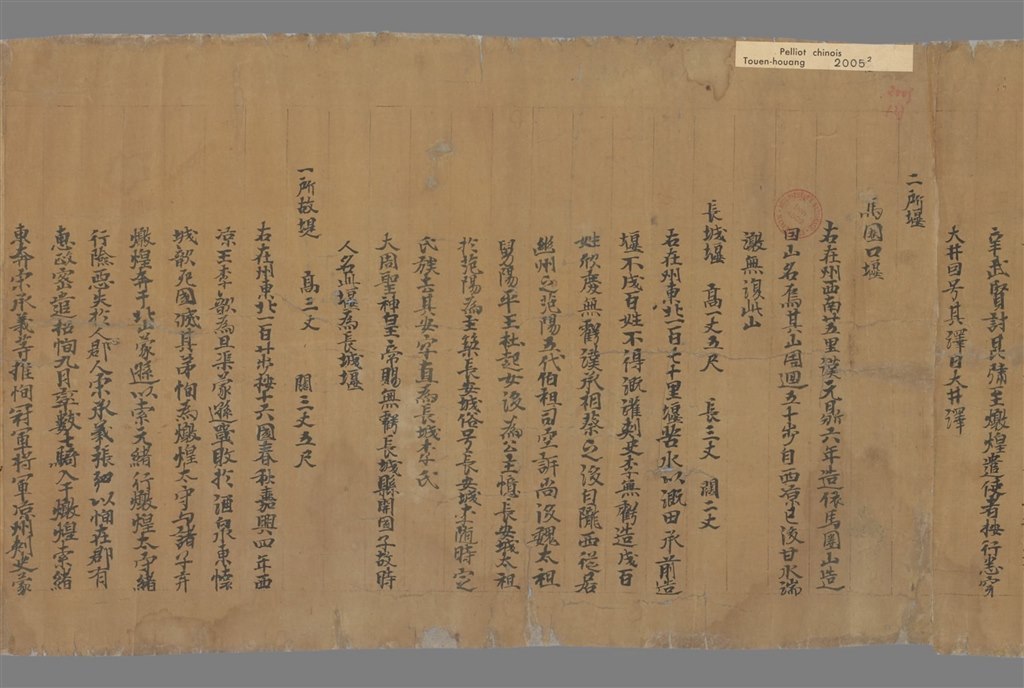 Pelliot chinois
Touen-houang 2005²
辛武賢討昆彌至燉煌遣使者按行悉穿
大井因号其澤曰大井澤
二所堰
馬圈口堰
右在州西南廿五里漢元鼎六年造依馬圈山造
因山名焉其山周迴五十步自西涼已後甘水湍
激無復此山
長城堰 高一丈五尺 長三丈 闊二丈
右在州東北一百七十里堰苦水以溉田承前造
堰不成百姓不得溉灌刺史李無虧造成百
姓欣慶無虧漢承相蔡之後自隴西徙居
幽州之范陽五代伯祖司空訢尚後魏太祖
舅陽平王杜超女後為公主憶長安城太祖
於范陽為主築長安城俗号長安城李隨時定
氏族去其安字直為長城李氏
大周聖神皇帝賜無虧長城縣開國子故時
人名此堰為長城堰
一所故堤 高三丈 闊三丈五尺
右在州東北一百廿步按十六國春秋嘉興四年西
涼王李歆為且渠蒙遜戰敗於酒泉東懷
城歆死國滅其弟恂為燉煌太守与諸子弃
燉煌奔于北山蒙遜以索元緒行燉煌太守緒
行險惡失於郡人宋承義張弘以恂在郡有
惠政密遣招恂九月率數十騎入于燉煌索緒
東奔宋承義等推恂冠軍將軍涼州刺史蒙